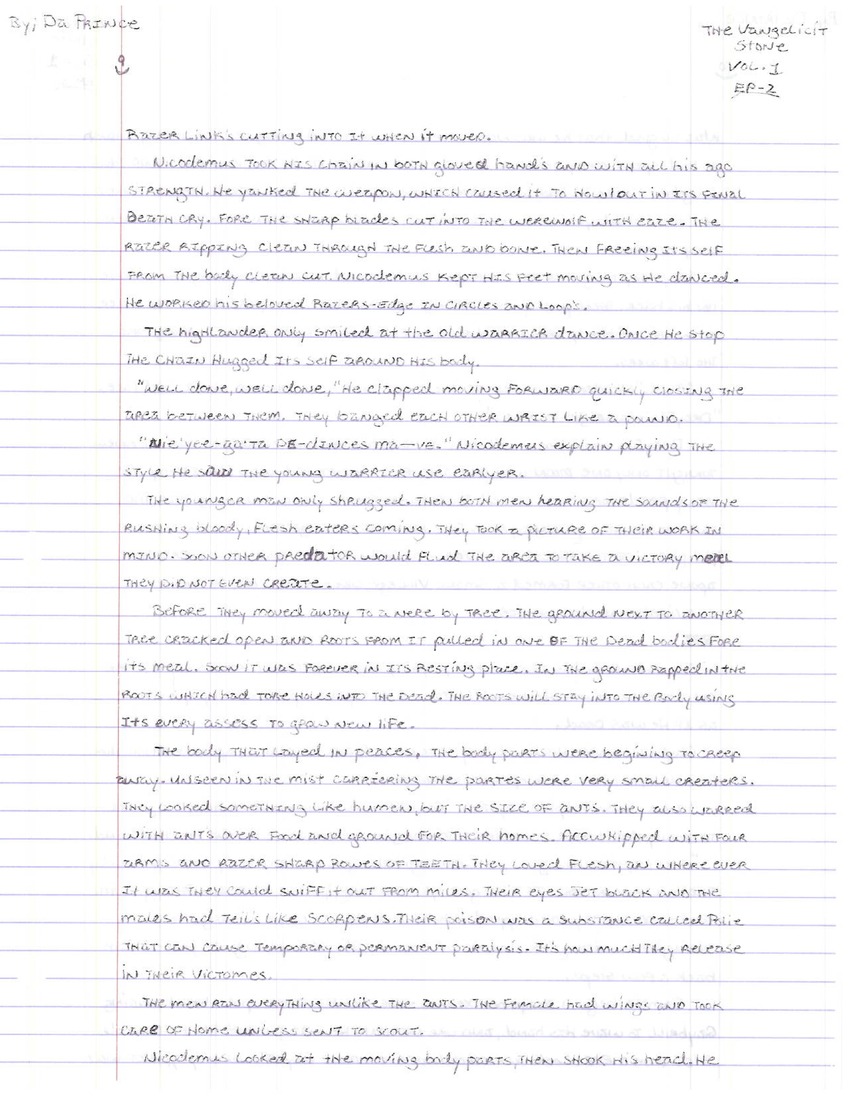 By; Da Prince
The Vangelicit
Stone
Vol. 1
EP-2
9
Razer Link's cutting into it when it moved.
Nicodemus took his chain in both gloved hand's and with all his ago
strength. He yanked the weapon, which caused it to howl out in its final
Death cry. Fore the sharp blades cut into the werewolf with eaze. The
razer ripping clean through the flesh and bone. Then freeing its self
from the body clean cut. Nicodemus kept his feet moving as he danced.
He worked his beloved Razers-Edge in circles and loop's.
The highlander only smiled at the old warrior dance. Once he stop
the chain hugged its self around his body.
"Well done, well done," He clapped moving forward quickly closing the
area between them. They banged each other wrist like a pound.
"Nie'yee-ga'ta de-dinces ma-ve." Nicodemus explain playing the
style he saw the young warrier use earlyer.
The younger man only shrugged. Then both men hearing the sounds of the
rushing bloody, flesh eaters coming. They took a picture of their work in
mind. Soon other predator would flud the area to take a victory meal
they did not even create.
Before they moved away to a nere by tree. The ground next to another
tree cracked open and roots from it pulled in one of the dead bodies fore
its meal. Soon it was forever in its resting place. In the ground rapped in the
roots which had tore holes into the dead. The roots will stay into the body using
its every assess to grow new life.
The body that layed in peaces, the body parts were begining to creep
away. Unseen in the mist carriering the partes were very small creaters.
They looked something like humen, but the size of ants. They also warred
with ants over food and ground for their homes. Accwhipped with four
arms and razer sharp rowes of teeth. They loved flesh, an where ever
it was they could sniff it out from miles. Their eyes jet black and the
males had teil's like scorpens. Their poison was a substance called Polie
that can cause temporary or permanent paralysis. It's how much they release
in their victomes.
The men ran everything unlike the ants. The female had wings and took
care of home unless sent to scout.
Nicodemus looked at the moving body parts, then shook his head. He